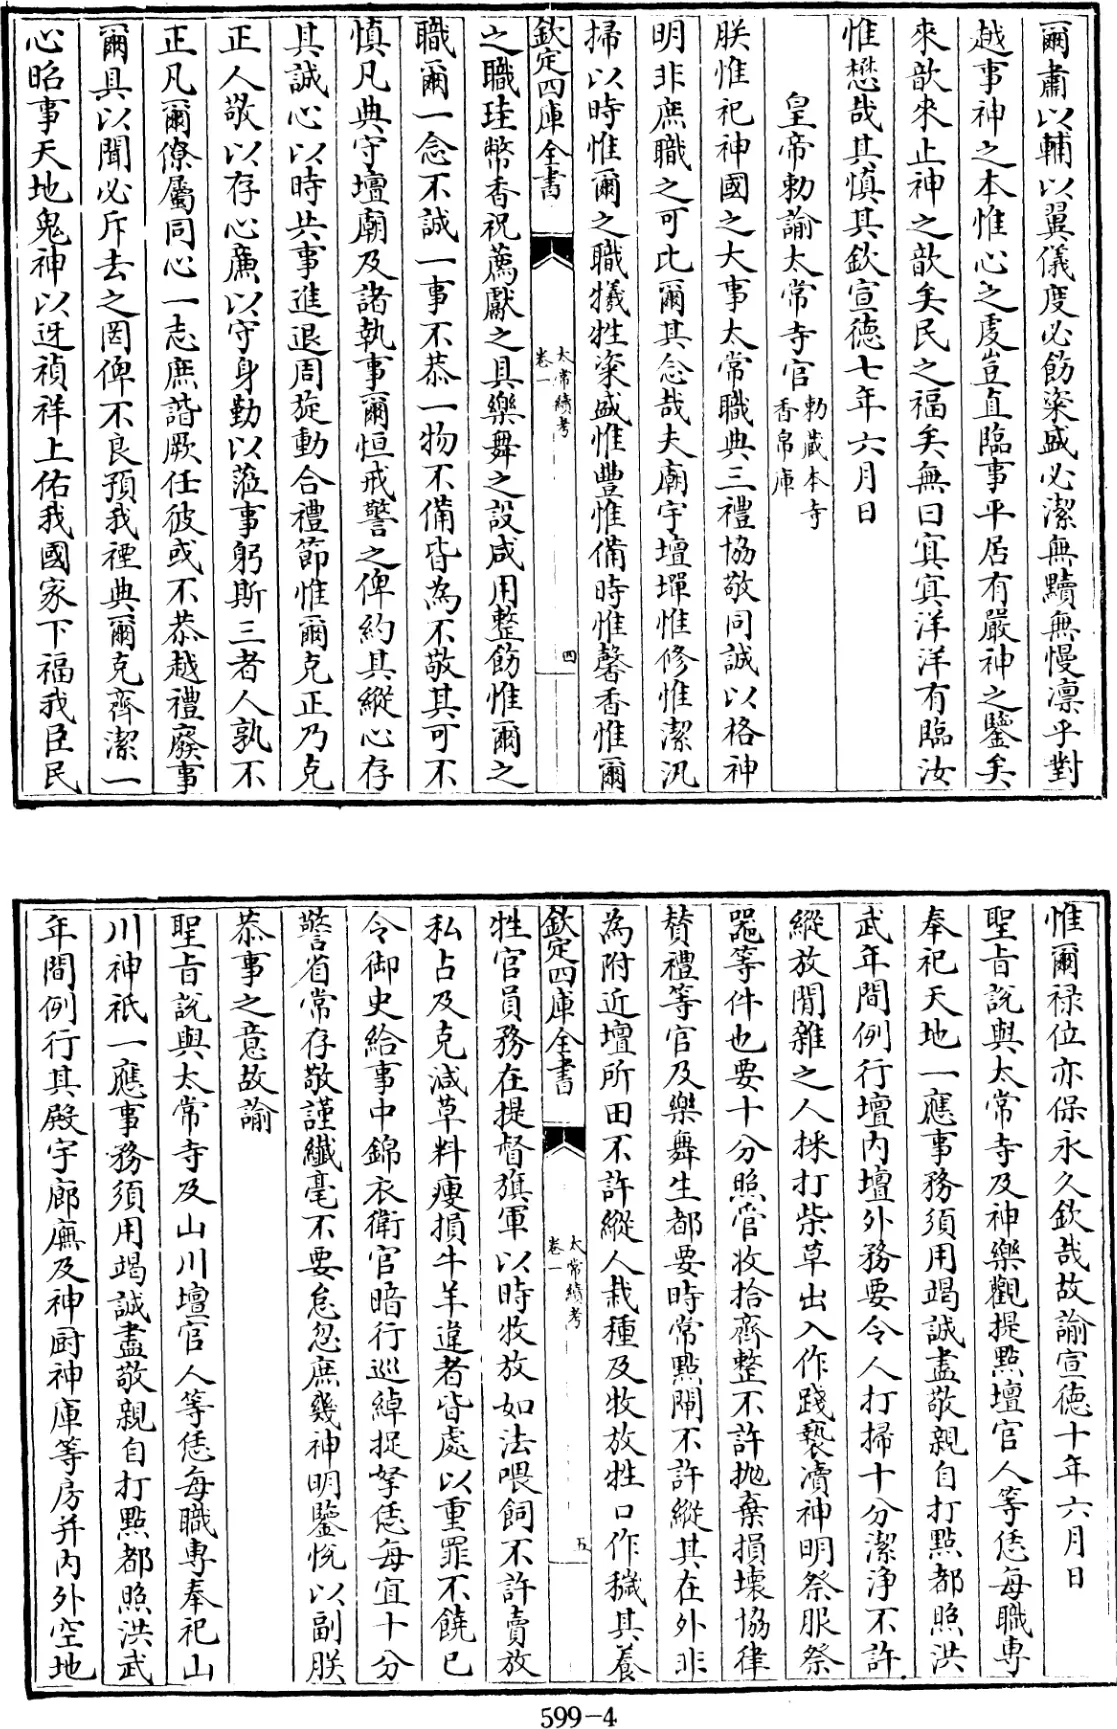 爾肅以輔以翼儀度必飭粢盛必潔無黷無慢凛乎對
越事神之本惟心之虔豈直臨事平居有嚴神之鑒矣
來歆來止神之歆矣民之福矣無曰冥冥洋洋有臨汝
惟懋哉其慎其欽宣德七年六月日
皇帝勅諭太常寺官勅藏本寺香帛庫
朕惟祀神國之大事太常職典三禮協敬同誠以格神
明非庶職之可比爾其念哉夫廟宇壇墠惟修惟潔汛
掃以時惟爾之職犧牲粢盛惟豐惟備時惟馨香惟爾
欽定四庫全書 太常續考 卷一 四
之職珪幣香祝薦獻之具樂舞之設咸用整飭惟爾之
職爾一念不誠一事不恭一物不備皆為不敬其可不
慎凡典守壇廟及諸執事爾恒戒警之俾約其縱心存
其誠心以時共事進退周旋動合禮節惟爾克正乃克
正人敬以存心廉以守身勤以蒞事躬斯三者人孰不
正凡爾僚屬同心一志庶諧厥任彼或不恭越禮廢事
爾具以聞必斥去之罔俾不良預我禋典爾克齊潔一
心昭事天地鬼神以迓禎祥上佑我國家下福我臣民
惟爾祿位亦保永久欽哉故諭宣德十年六月日
聖旨說與太常寺及神樂觀提點壇官人等恁每職專
奉祀天地一應事務須用竭誠盡敬親自打點都照洪
武年間例行壇內壇外務要令人打掃十分潔淨不許
縱放閒雜之人採打柴草出入作踐褻瀆神明祭服祭
器等件也要十分照管收拾齊整不許拋棄損壞協律
賛禮等官及樂舞生都要時常點閘不許縱其在外非
為附近壇所田不許縱人栽種及牧放牲口作穢其養
欽定四庫全書 太常續考 卷一 五
牲官員務在提督旗軍以時牧放如法喂飼不許賣放
私占及克減草料瘦損牛羊違者皆處以重罪不饒已
令御史給事中錦衣衛官暗行巡綽捉拏恁每宜十分
警省常存敬謹纎毫不要怠忽庶幾神明鑒悅以副朕
恭事之意故諭
聖旨說與太常寺及山川壇官人等恁每職專奉祀山
川神祇一應事務須用竭誠盡敬親自打點都照洪武
年間例行其殿宇廊廡及神厨神庫等房并內外空地
599-4